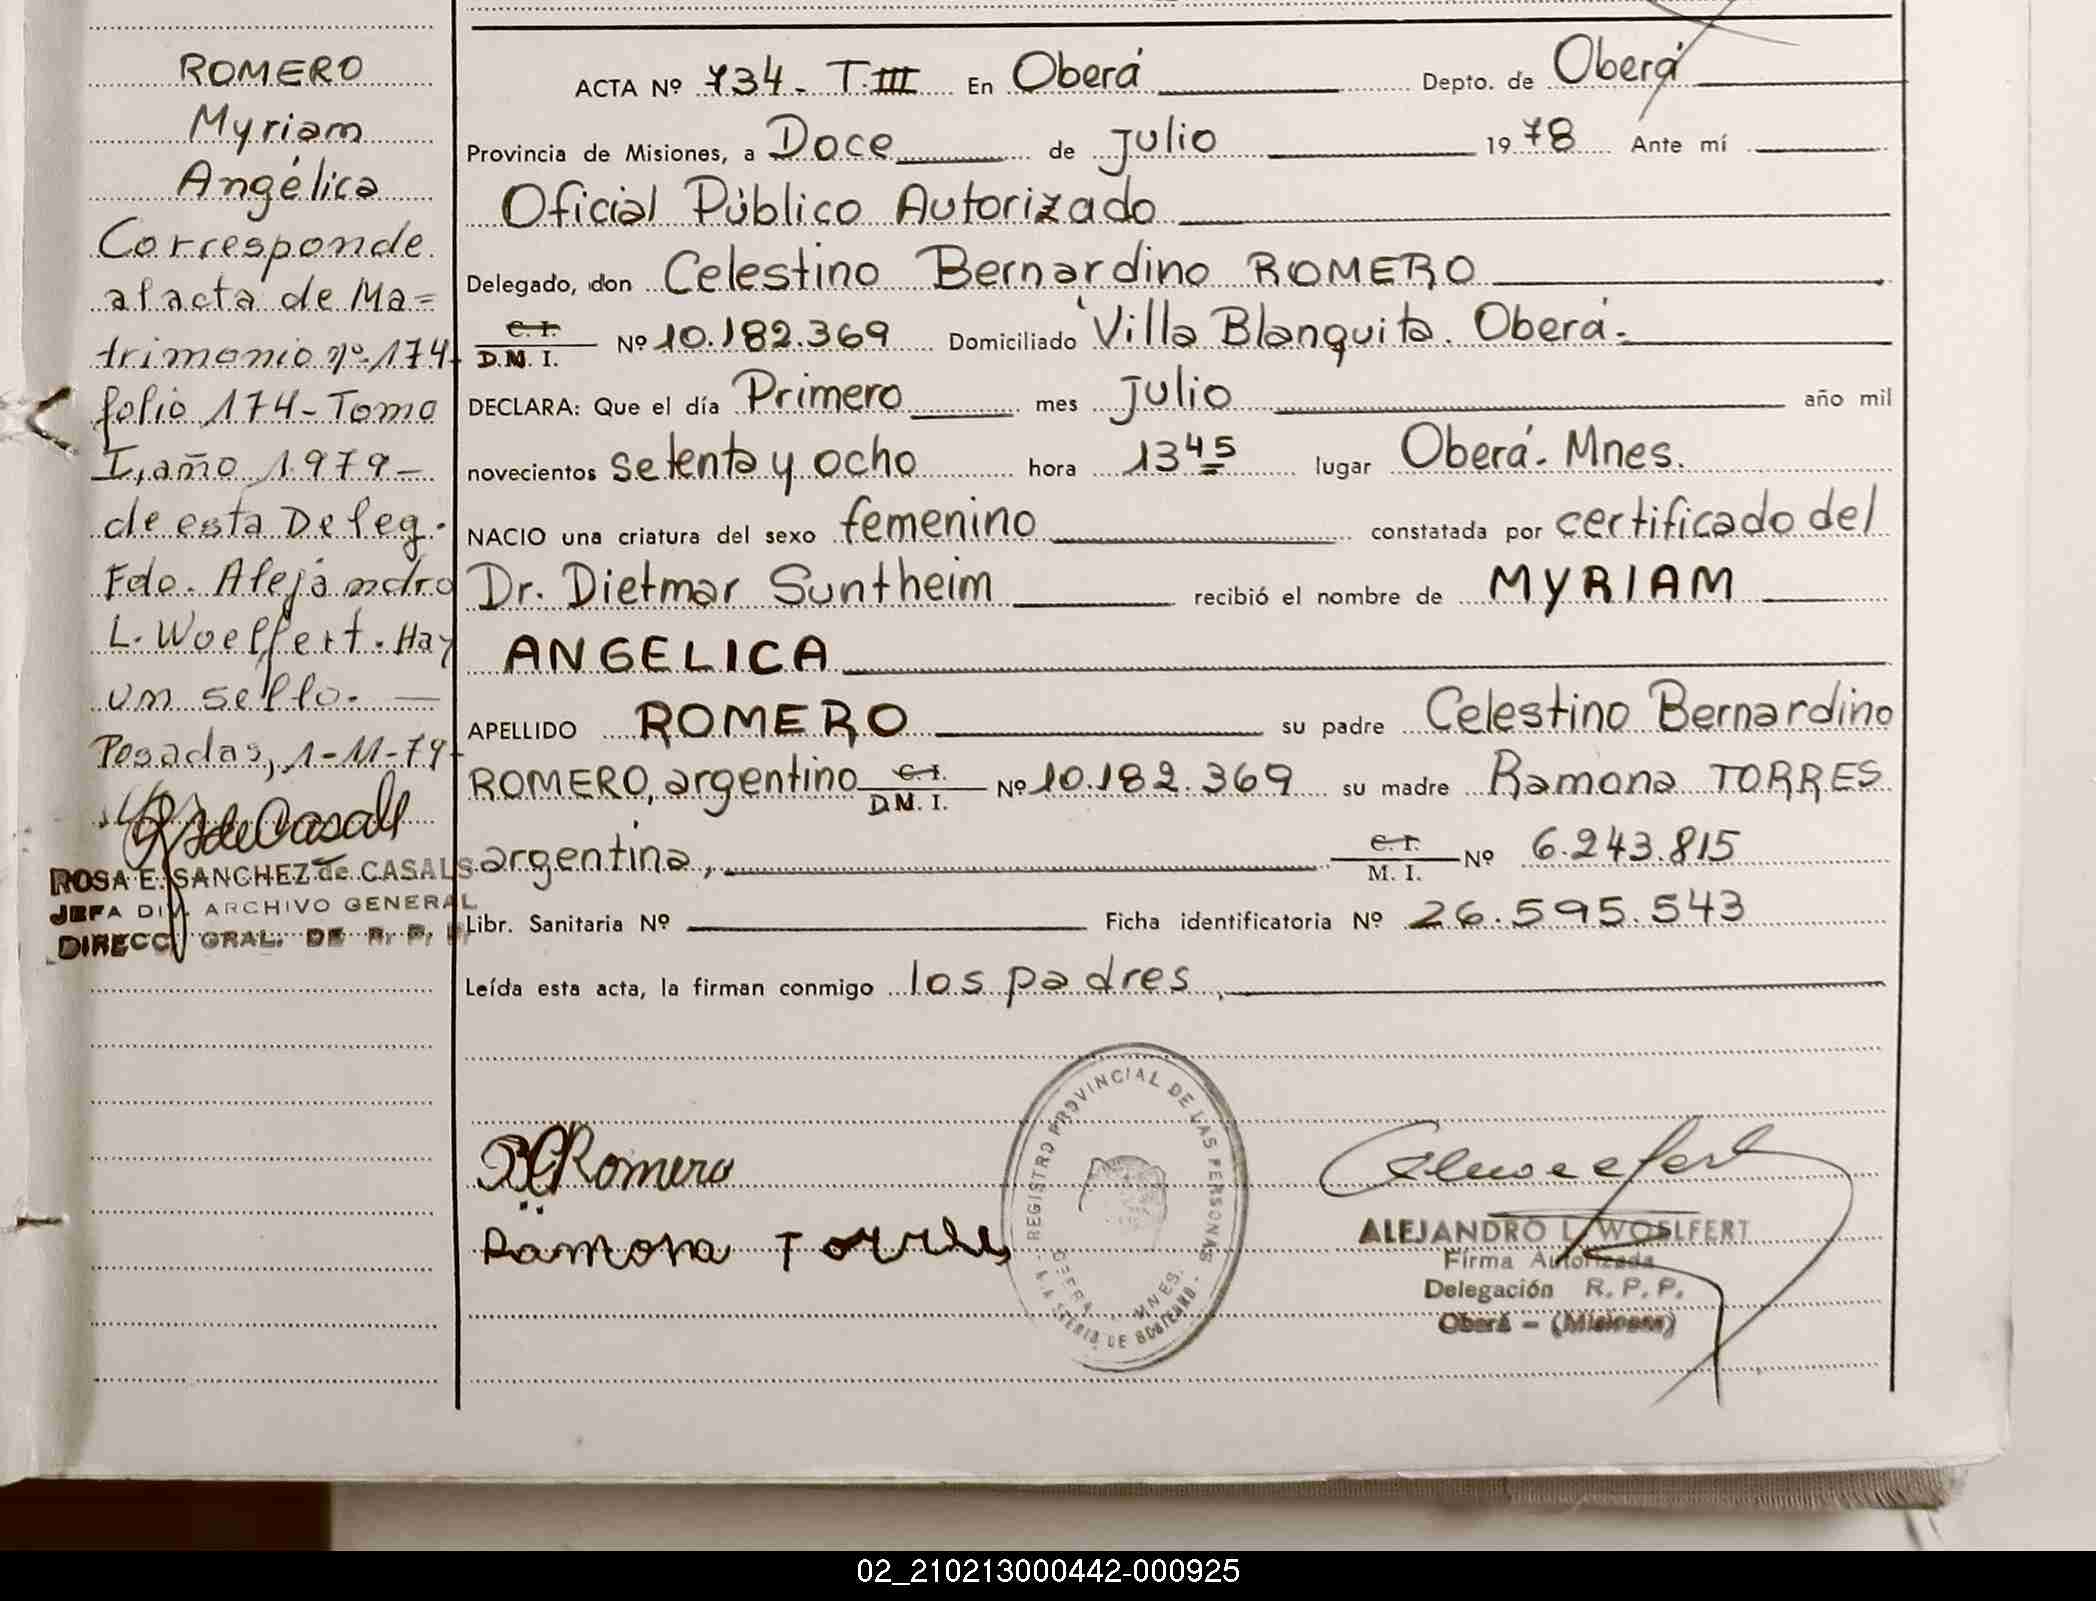 ROMERO
Myriam
Angélica
Corresponde
al acta de Ma=
trimonio nº 174-
folio 174-Tomo
I, año 1979-
de esta Deleg.
Fdo. Alejandro
L. Woelfert. Hay
un sello. —
Posadas, 1-11-79-
ROSA E. SANCHEZ de CASALS
JEFA DIV. ARCHIVO GENERAL
DIRECC. GRAL. DE R. P.
ACTA Nº 734- T.III En Oberá Depto. de Oberá
Provincia de Misiones, a Doce de julio 1978 Ante mí
Oficial Público Autorizado
Delegado, don Celestino Bernardino ROMERO
C.I.
D.M.I. Nº 10.182.369 Domiciliado Villa Blanquita. Oberá.-
DECLARA: Que el día Primero mes julio año mil
novecientos setenta y ocho hora 13 45 lugar Oberá. Mnes.
NACIO una criatura del sexo femenino constatada por certificado del
Dr. Dietmar Suntheim recibió el nombre de MYRIAM
ANGELICA
APELLIDO ROMERO su padre Celestino Bernardino
ROMERO, argentino C.I. D.M.I. Nº 10.182.369 su madre Ramona TORRES
argentina, C.I. M.I. Nº 6.243.815
Libr. Sanitaria Nº Ficha identificatoria Nº 26.595.543
Leída esta acta, la firman conmigo los padres,
Romero
Ramona Torres
REGISTRO PROVINCIAL DE LAS PERSONAS
MNES.
ALEJANDRO L. WOELFERT
Firma Autorizada
Delegación R. P. P.
Oberá - (Misiones)
02_210213000442-000925